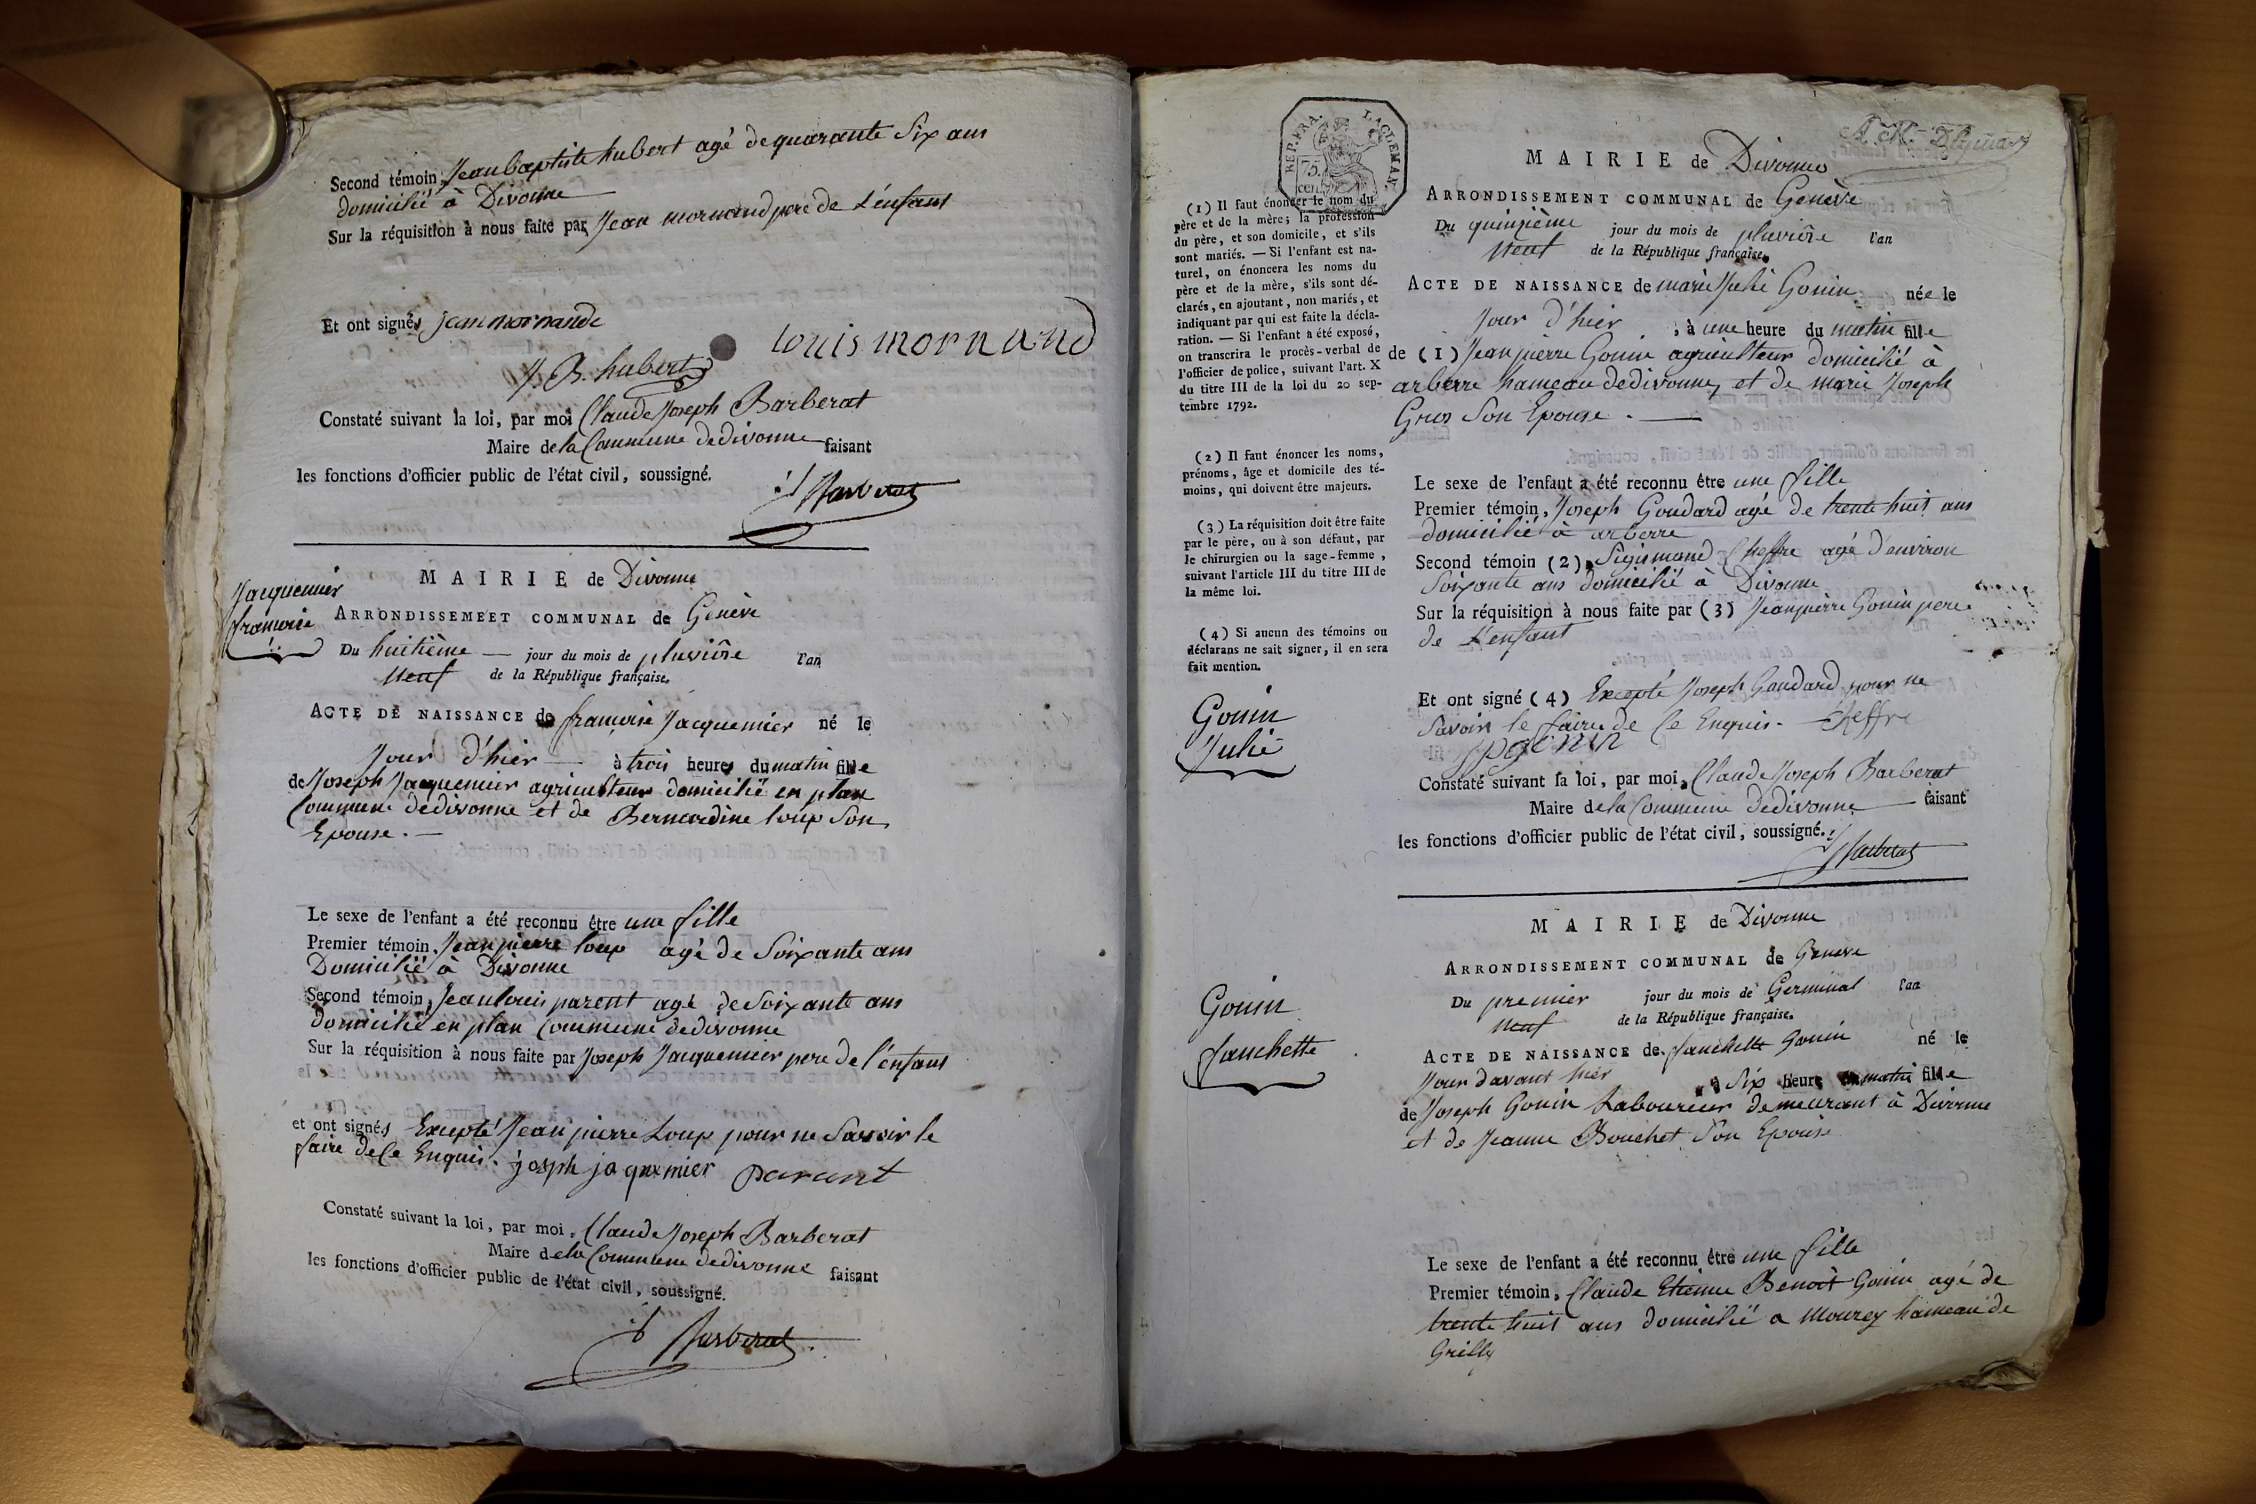 Second témoin, Jean baptiste hubert agé de quarante Six ans
domicilié à Divonne
Sur la réquisition à nous faite par Jean mornand pere de L'enfant
Et ont signés jean mornande
louis mornand
J. B. hubert
Constaté suivant la loi, par moi Claude Joseph Barberat
Maire de la Commune de divonne faisant
les fonctions d'officier public de l'état civil, soussigné.
Barberat
Jacquemier
francoise
MAIRIE de Divonne
ARRONDISSEMEET COMMUNAL de Genève
Du huitième — jour du mois de pluviôse l'an
Neuf de la République française.
ACTE DE NAISSANCE de francoise Jacquemier né le
Jour d'hier — à trois heures du matin fille
de Joseph Jacquemier agriculteur domicilié en plan
Commune de divonne et de Bernardine loup Son
Epouse. —
Le sexe de l'enfant a été reconnu être une fille
Premier témoin, Jean pierre loup agé de Soixante ans
Domicilié à Divonne
Second témoin, Jean louis parent agé de Soixante ans
domicilié en plan Commune de divonne
Sur la réquisition à nous faite par Joseph Jacquemier pere de l'enfant
et ont signés Excepté Jean pierre Loup pour ne Savoir le
faire de Ce Enquis. josph jaquemier parant
Constaté suivant la loi, par moi, Claude Joseph Barberat
Maire de la Commune de divonne faisant
les fonctions d'officier public de l'état civil, soussigné.
Barberat
REP. FRA.
75.
cen.
(1) Il faut énoncer le nom du
père et de la mère; la profession
du père, et son domicile, et s'ils
sont mariés. — Si l'enfant est na-
turel, on énoncera les noms du
père et de la mère, s'ils sont dé-
clarés, en ajoutant, non mariés, et
indiquant par qui est faite la décla-
ration. — Si l'enfant a été exposé,
on transcrira le procès-verbal de
l'officier de police, suivant l'art. X
du titre III de la loi du 20 sep-
tembre 1792.
(2) Il faut énoncer les noms,
prénoms, âge et domicile des té-
moins, qui doivent être majeurs.
(3) La réquisition doit être faite
par le père, ou à son défaut, par
le chirurgien ou la sage-femme,
suivant l'article III du titre III de
la même loi.
(4) Si aucun des témoins ou
déclarans ne sait signer, il en sera
fait mention.
Gonin
Julie
Gonin
fanchette
MAIRIE de Divonne
ARRONDISSEMENT COMMUNAL de Genève
Du quinzième jour du mois de pluviôse l'an
Neuf de la République française.
ACTE DE NAISSANCE de marie Julie Gonin née le
Jour d'hier, à une heure du matin fille
de (1) Jean pierre Gonin agriculteur domicilié à
arberre hameau de divonne, et de marie Joseph
Gros Son Epouse. —
Le sexe de l'enfant a été reconnu être une fille
Premier témoin, Joseph Goudard agé de trente huit ans
domicilié à arberre
Second témoin (2), Sigismond Cheffre agé d'environ
Soixante ans domicilié à Divonne
Sur la réquisition à nous faite par (3) Jean pierre Gonin pere
de L'enfant
Et ont signé (4) Excepté Joseph Goudard pour ne
Savoir le faire de Ce Enquis.
Constaté suivant la loi, par moi, Claude Joseph Barberat
Maire de la Commune de divonne faisant
les fonctions d'officier public de l'état civil, soussigné.
Barberat
MAIRIE de Divonne
ARRONDISSEMENT COMMUNAL de Geneve
Du premier jour du mois de Germinal l'an
neuf de la République française.
ACTE DE NAISSANCE de fanchette Gonin né le
Jour d'avant hier à Six heures du matin fille
de Joseph Gonin Laboureur demeurant à Divonne
et de Jeanne Bouchet Son Epouse
Le sexe de l'enfant a été reconnu être une fille
Premier témoin, Claude Etienne Benoit Gonin agé de
trente huit ans domicilié a Mourex hameau de
Grilly